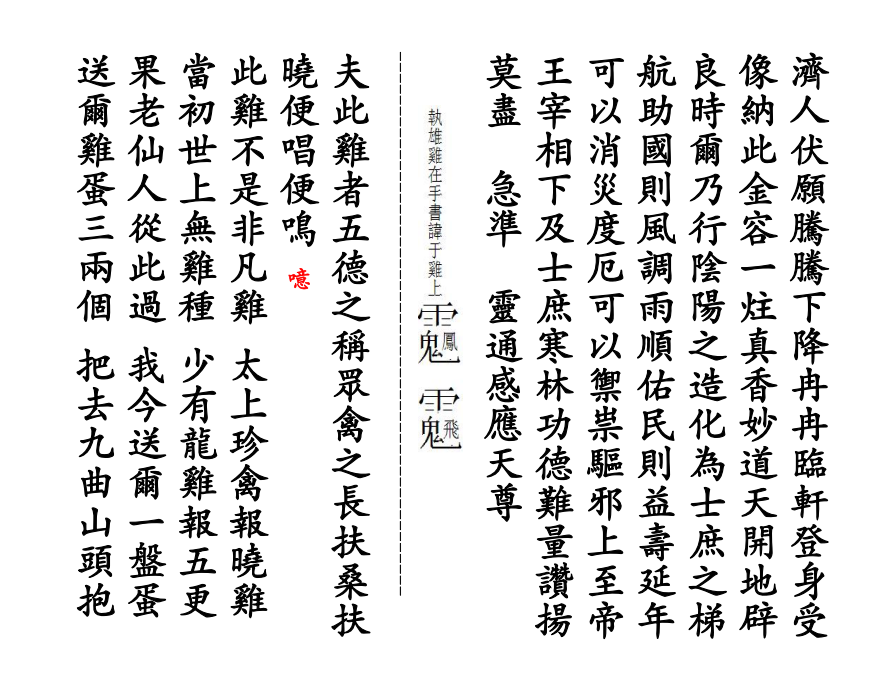 濟人伏願騰騰下降冉冉臨軒登身受
像納此金容一炷真香妙道天開地辟
良時爾乃行陰陽之造化為士庶之梯
航助國則風調雨順佑民則益壽延年
可以消災度厄可以禦祟驅邪上至帝
王宰相下及士庶寒林功德難量讚揚
莫盡 急準 靈通感應天尊
執雄雞在手書諱于雞上
夫此雞者五德之稱眾禽之長扶桑扶
曉便唱便鳴 噫
此雞不是非凡雞 太上珍禽報曉雞
當初世上無雞種 少有龍雞報五更
果老仙人從此過 我今送爾一盤蛋
送爾雞蛋三兩個 把去九曲山頭抱